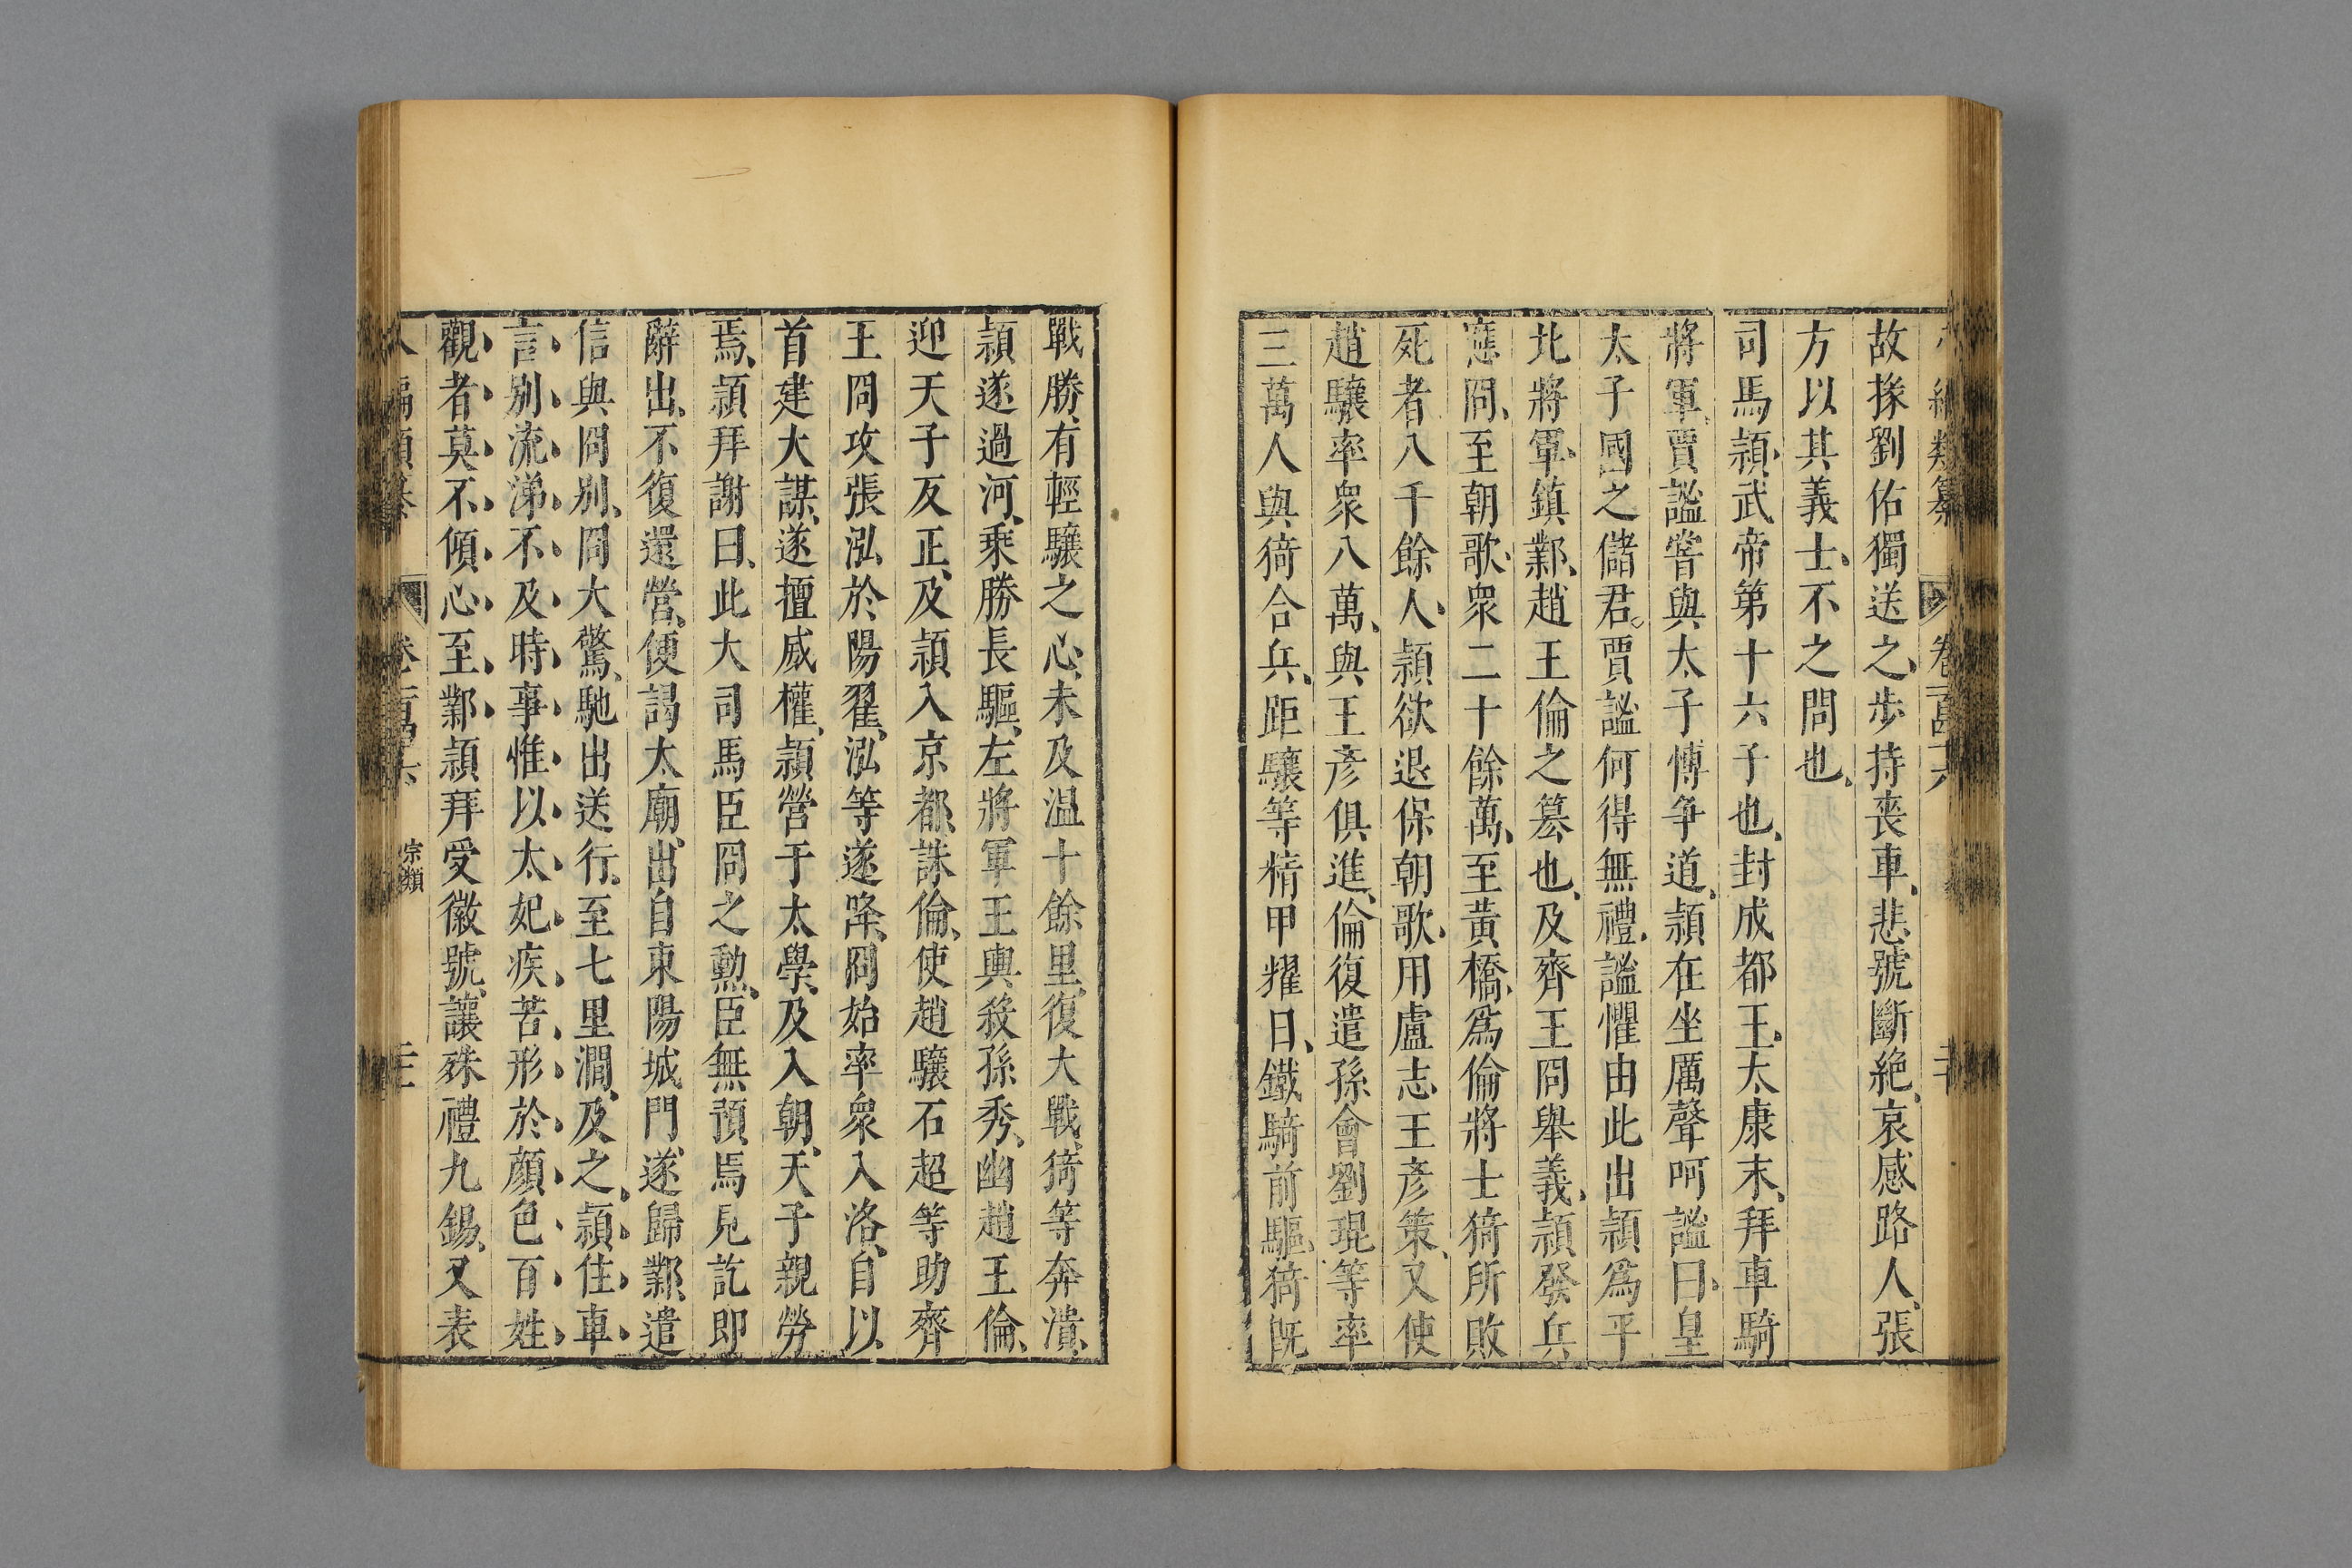 編類纂 卷一百四十六
故掾劉佑獨送之、步持喪車、悲號斷絶、哀感路人、張
方以其義士、不之問也、
司馬穎、武帝第十六子也、封成都王、太康末、拜車騎
將軍、賈謐嘗與太子博争道、穎在坐厲聲呵謐曰、皇
太子國之儲君。賈謐何得無禮、謐懼由此出穎爲平
北將軍、鎮鄴、趙王倫之篡也、及齊王冏舉義、穎發兵
應冏、至朝歌、衆二十餘萬、至黃橋、爲倫將士猗所敗
死者八千餘人、穎欲退保朝歌、用盧志、王彥策、又使
趙驤率衆八萬、與王彥俱進、倫復遣孫會劉琨等率
三萬人與猗合兵、距驤等、精甲耀日、鐵騎前驅、猗既
戰勝、有輕驤之心、未及温十餘里、復大戰、猗等奔潰、
穎遂過河、乘勝長驅、左將軍王輿殺孫秀、幽趙王倫、
迎天子反正、及穎入京都、誅倫、使趙驤石超等助齊
王冏攻張泓於陽翟、泓等遂降、冏始率衆入洛、自以
首建大謀、遂擅威權、穎營于太學、及入朝、天子親勞
焉、穎拜謝曰、此大司馬臣冏之勲、臣無預焉見訖即
辭出、不復還營、便謁太廟、出自東陽城門、遂歸鄴、遣
信與冏别、冏大驚、馳出送行、至七里澗、及之、穎住車
言别流涕不及時事惟以太妃疾苦形於顏色百姓
觀者莫不傾心至鄴、穎拜受徽號、讓殊禮九錫、又表
卷一百四十六 宗類